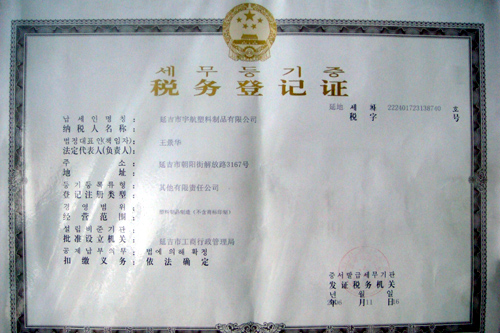 세무등기증
税务登记证
延地 세 자 222401723138740 호
税字 号
납세인명칭
纳税人名称 延吉市宇航塑料制品有限公司
법정대표인(책임자)
法定代表人(负责人) 王景华
주소
地址 延吉市朝阳街解放路3167号
등기등록류형
登记注册类型 其他有限责任公司
경영범위
经营范围
설립비준기관
批准设立机关 延吉市工商行政管理局
공제납부의무 법에 의해 확정
扣缴义务 依法确定
증서발급세무기관
发证税务机关
년 월 일
11